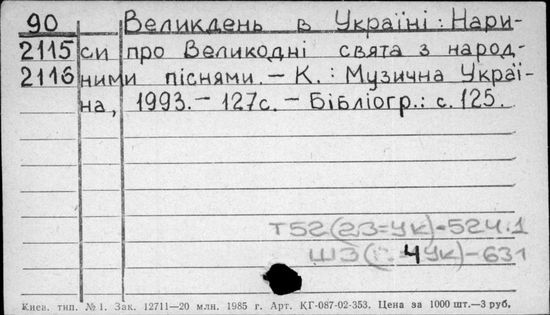 90 Великдень в Україні: Нари-
2115 си про Великодні свята з народ-
2116 ними піснями. – К.: Музична Украї-
на, 1993. – 127с. – Бібліогр.: с. 125.
Т52(2З=УК)-524.1
Ш3( =4УК)-631
Киев. тип. №1. Зак. 12711—20 млн. 1985 г. Арт. КГ-087-02-353. Цена за 1000 шт.—3 руб.